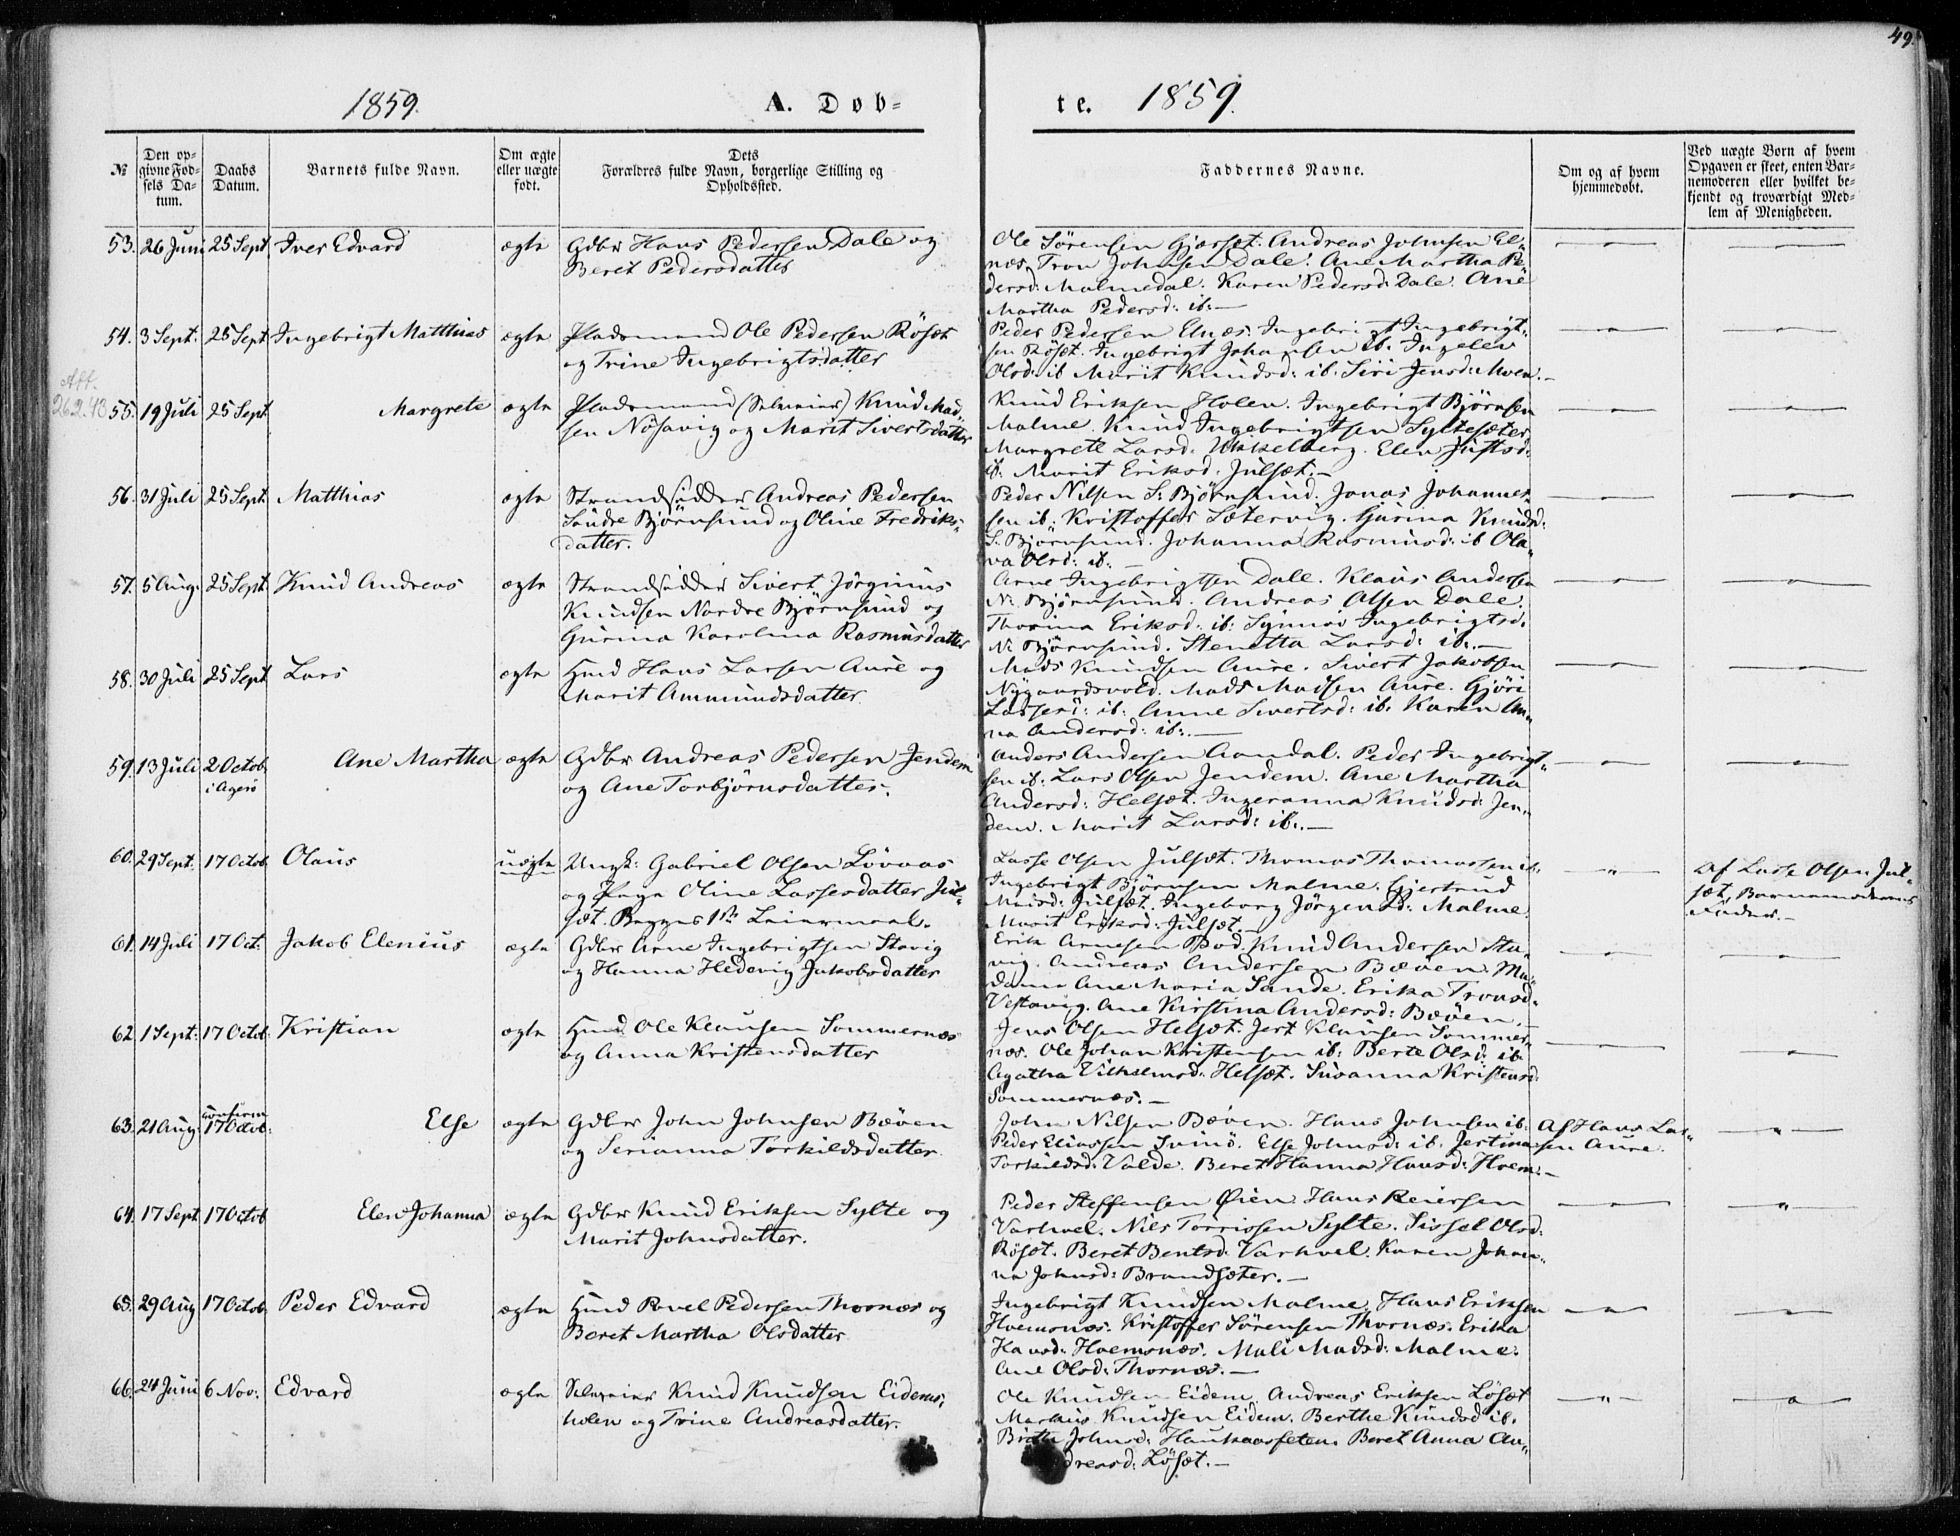 49.
1859. A. Døb-
te. 1859.
№ Den opgivne Fødsels Datum. Daabs Datum. Barnets fulde Navn. Om ægte eller uægte født. Dets Forældres fulde Navn, borgerlige Stilling og Opholdssted. Faddernes Navne. Om og af hvem hjemmedøbt. Ved uægte Børn af hvem Opgaven er skeet, enten Barnemoderen eller hvilket bekjendt og troværdigt Medlem af Menigheden.
53. 26 Juni 25 Sept Iver Edvard ægte Gdbr Hans Pedersen Dale og
Beret Pedersdatter
Ole Sörensen Gjærset. Andreas Johnsen El-
næs. Tron Johnsen Dale. Ane Martha Pe-
dersd: Malmedal. Karen Pedersd: Dale. Ane
Martha Pedersd: ib:—
54. 3 Sept. 25 Sept Ingebrigt Matthias ægte Pladsmand Ole Pedersen Röset
og Trine Ingebrigtsdatter
Peder Pedersen Elnæs. Ingebrigt Ingebrigt-
sen Röset. Ingebrigt Johansen ib. Ingelev
Olsd: ib Marit Knudsd: ib. Siri Jensd: Moen.—
Att.
26.2.43
55. 19 Juli 25 Sept Margrete ægte Pladsmand (Selveier) Knud Mad-
sen Nösavig og Marit Sivertsdatter
Knud Eriksen Holen. Ingebrigt Björnsen
Malme. Knud Ingebrigtsen Syltesæter
Margrete Larsd. Mikkelberg. Elen Justsd:
ib. Marit Eriksd. Julset.—
56. 31 Juli 25 Sept. Matthias ægte Strandsidder Andreas Pedersen
Söndre Björnsund og Oline Fredriks-
datter.
Peder Nilsen S: Björnsund. Jonas Johannes-
sen ib: Kristoffer Sætervig. Gurina Knudsd:
S. Björnsund. Johanna Rasmusd: ib Ola-
va Olsd: ib.—
57. 5 Aug. 25 Sept. Knud Andreas ægte Strandsidder Sivert Jörginus
Knudsen Nordre Björnsund og
Gurina Karolina Rasmusdatter
Arne Ingebrigtsen Dale. Klaus Andersen
N: Björnsund. Andreas Olsen Dale.
Thorina Eriksd: ib: Synnöv Ingebrigtsd.
N: Björnsund. Stenetta Larsd: ib.—
58. 30 Juli 25 Sept Lars ægte Hmd Hans Larsen Aure og
Marit Ammundsdatter
Mads Knudsen Aure. Sivert Jakobsen
Nygaardsvold. Mads Madsen Aure. Gjöri
Lassesd: ib: Anne Sivertsd: ib. Karen An-
na Andersd: ib:.—
59. 13 Juli 2 Octob
i Agerö Ane Martha ægte Gdbr Andreas Pedersen Jendem
og Ane Torbjörnsdatter.
Anders Andersen Aandal. Peder Ingebrigt-
sen ib. Lars Olsen Jendem. Ane Martha
Andersd: Helset. Ingeranna Knudsd: Jen-
dem. Marit Larsd: ib.—
60. 29 Sept. 17 Octob Olaus uægte Ungk: Gabriel Olsen Lövaas
og Pige Oline Lassesdatter Jul-
set. Begges 1ste Leiermaal.
Lasse Olsen Julset. Thomas Thomassen ib.
Ingebrigt Björnsen Malme. Gjertrud
Jörgensd: Malme.
Marit Eriksd: Julset.—
Af Lasse Olsen Jul-
set, Barnemoderens
Fader.—
61. 14 Juli 17 Oct: Jakob Elenius ægte Gdbr Arne Ingebrigtsen Stavig
og Hanna Hedevig Jakobsdatter
Erik Arnesen Bod. Knud Andersen Sta-
vig. Andreas Andersen Bæven. Ma-
dame Ane Maria Sande. Erika Tronsd.
Vestavig. Ane Kirstina Andersd: Bæven.—
62. 1 Sept: 17 Octob: Kristian ægte Hmd Ole Klausen Sommernæs
og Anna Kristensdatter
Jens Olsen Helset. Jert Klausen Sommer-
næs. Ole Johan Kristensen ib: Berte Olsd. ib.
Agatha Vilhelmsd. Helset. Susanna Kristensd:
Sommernæs.—
63. 21 Aug: confirm
17 Octob: Else ægte Gdbr John Johnsen Bæven
og Serianna Torkildsdatter
John Nilsen Bæven. Hans Johnsen ib.
Peder Eliassen Sunö. Else Johnsd: ib. Jertina
Torkildsd: Valde. Beret Hanna Hansd: Hoem.—
Af Hans Lar-
sen Aure.
64. 17 Sept 17 Octob Elen Johanna ægte Gdbr Knud Eriksen Sylte og
Marit Johnsdatter.
Peder Steffensen Öien. Hans Reiersen
Varhvel. Nils Torrissen Sylte. Sissel Olsd:
Röset. Beret Bentsd: Varhvel. Karen Johan-
na Johnsd: Brandsæter.—
65. 29 Aug 17 Octob Peder Edvard ægte Hmd Povel Pedersen Thornæs og
Beret Martha Olsdatter
Ingebrigt Knudsen Malme. Hans Eriksen
Hoemsnæs. Kristoffer Sörensen Thornæs. Erika
Hansd: Hoemsnæs. Mali Madsd: Malme.
Ane Olsd: Thornæs.—
66. 24 Juni 6 Nov: Edvard ægte Selveier Knud Knudsen Eidems-
holen og Trine Andreasdatter.
Ole Knudsen Eidem. Andreas Eriksen Löset
Markus Knudsen Eidem. Berthe Knudsd ib.
Johnsd: Haukaassetens Beret Anna An-
dreasd: Löset.—